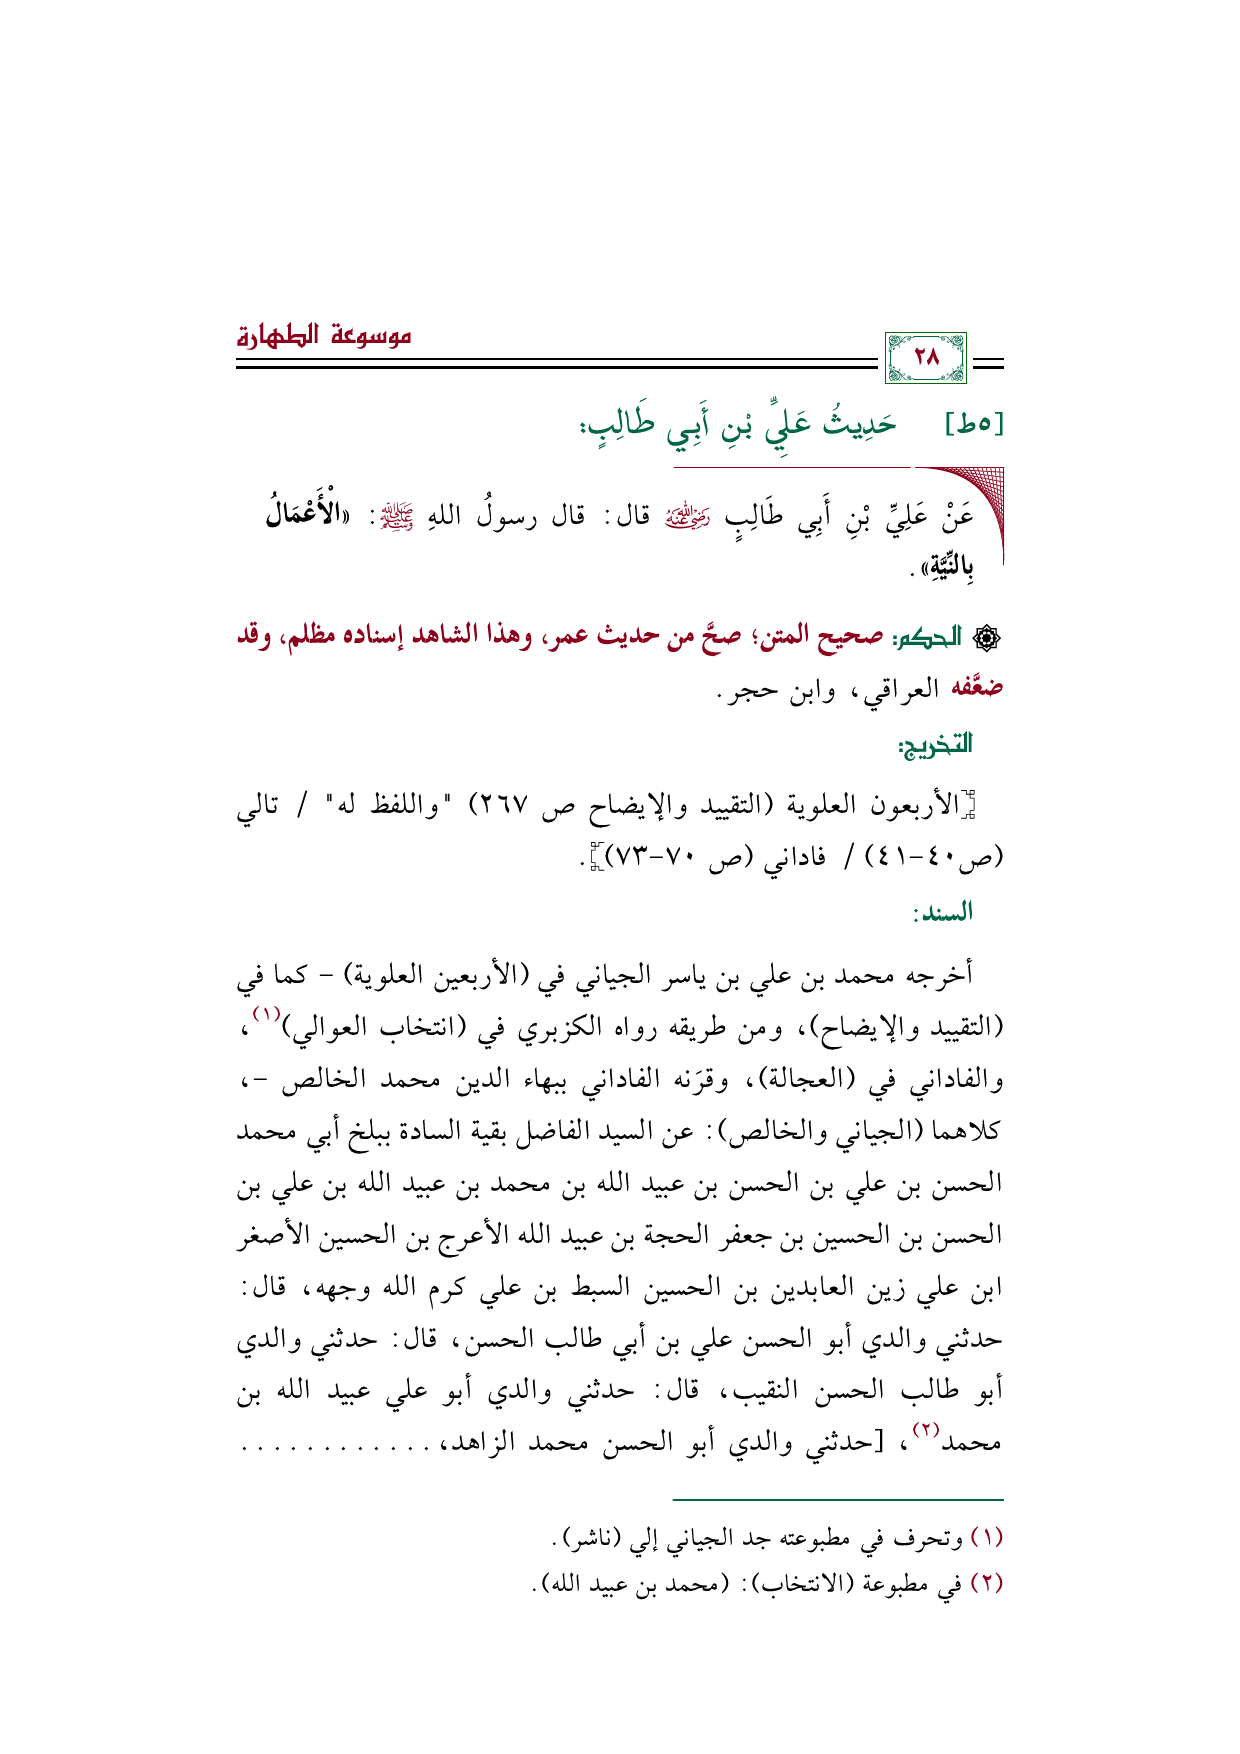 موسوعة الطهارة
٢٨
[٥ط] حَدِيثُ عَلِيِّ بْنِ أَبِي طَالِبٍ:
عَنْ عَلِيِّ بْنِ أَبِي طَالِبٍ رضي الله عنه قال: قال رسولُ اللهِ ﷺ: «الْأَعْمَالُ
بِالنِّيَّةِ».
الحكم: صحيح المتن؛ صحَّ من حديث عمر، وهذا الشاهد إسناده مظلم، وقد
ضعَّفه العراقي، وابن حجر.
التخريج:
[الأربعون العلوية (التقييد والإيضاح ص ٢٦٧) "واللفظ له" / تالي
(ص٤٠-٤١) / فاداني (ص ٧٠-٧٣)].
السند:
أخرجه محمد بن علي بن ياسر الجياني في (الأربعين العلوية) - كما في
(التقييد والإيضاح)، ومن طريقه رواه الكزبري في (انتخاب العوالي)(١)،
والفاداني في (العجالة)، وقرَنه الفاداني ببهاء الدين محمد الخالص -،
كلاهما (الجياني والخالص): عن السيد الفاضل بقية السادة ببلخ أبي محمد
الحسن بن علي بن الحسن بن عبيد الله بن محمد بن عبيد الله بن علي بن
الحسن بن الحسين بن جعفر الحجة بن عبيد الله الأعرج بن الحسين الأصغر
ابن علي زين العابدين بن الحسين السبط بن علي كرم الله وجهه، قال:
حدثني والدي أبو الحسن علي بن أبي طالب الحسن، قال: حدثني والدي
أبو طالب الحسن النقيب، قال: حدثني والدي أبو علي عبيد الله بن
محمد(٢)، [حدثني والدي أبو الحسن محمد الزاهد،............
(١) وتحرف في مطبوعته جد الجياني إلي (ناشر).
(٢) في مطبوعة (الانتخاب): (محمد بن عبيد الله).